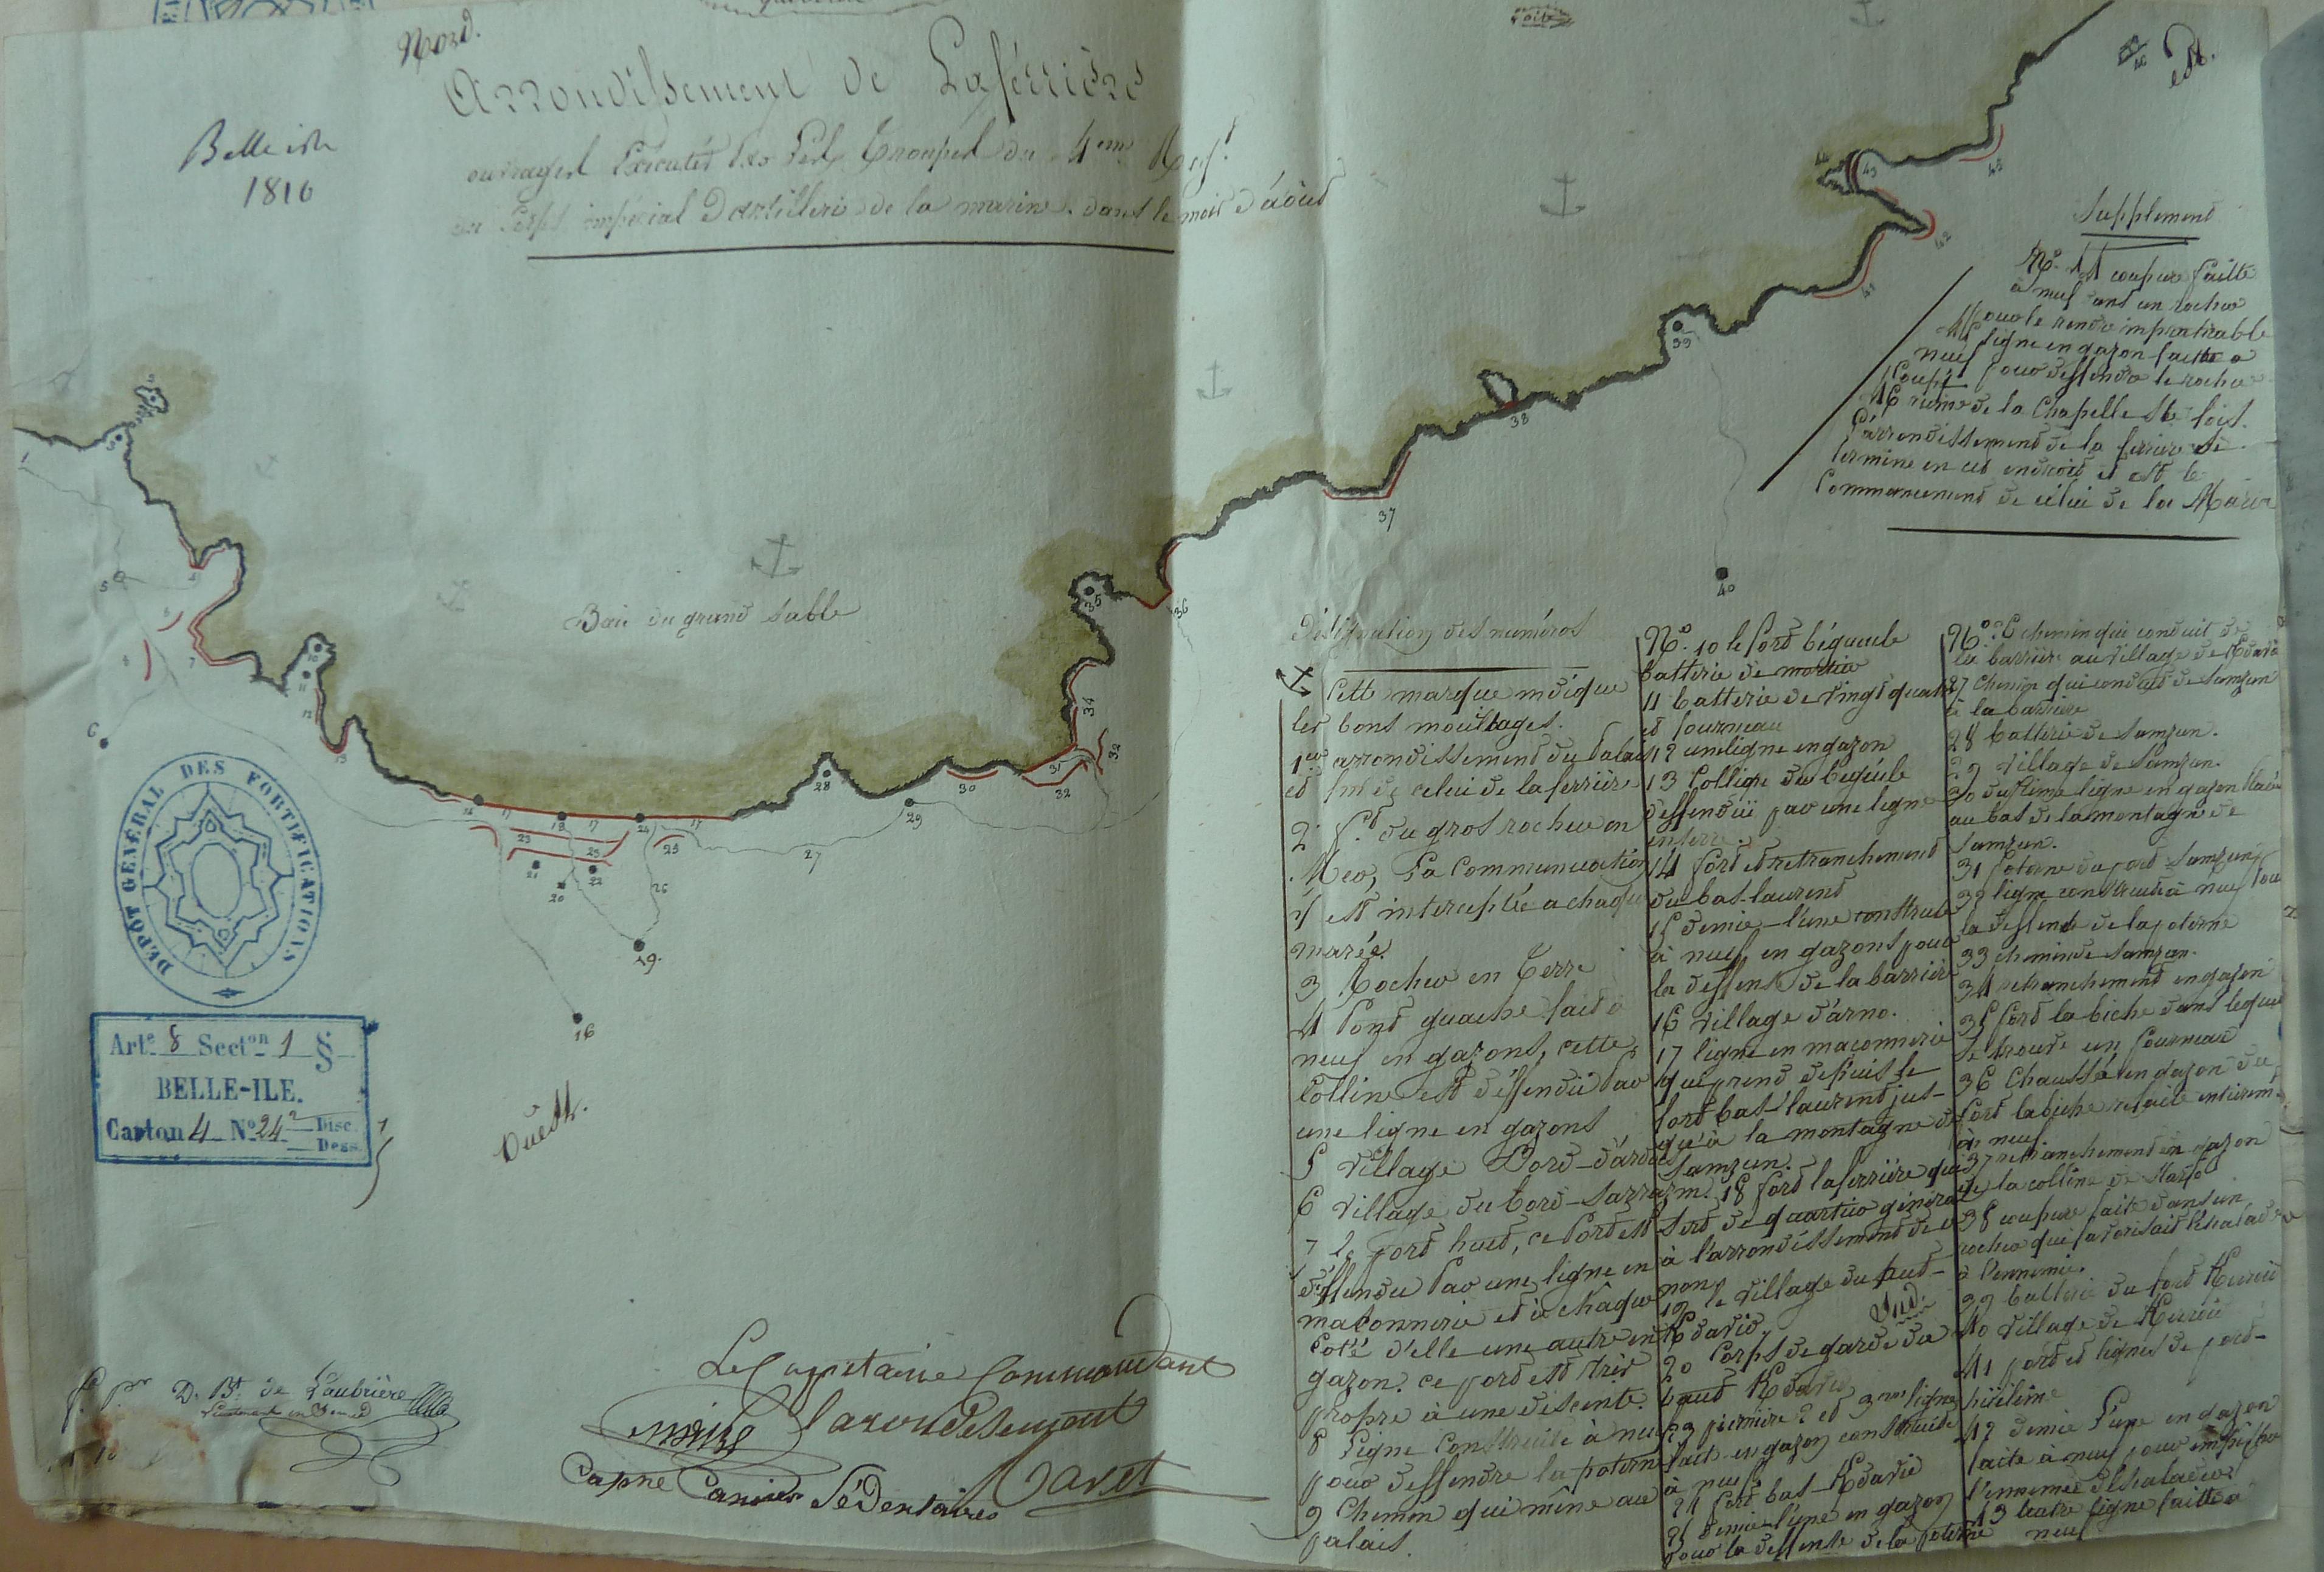 Nord.
Belle isle
1810
Arrondissement de Laférrière
ouvrages Exécutés Par Les Troupes du 4eme Regt
du Corps impérial D'artillerie de la marine dans le mois d'août
est.
Supplement
No. 44 coupure faitte
à neuf dans un rocher
pour le rendre impraticable
45 ligne en gazon faitte a
neuf pour deffendre le rocher
Coupé
46 ruine de la Chapelle Ste foi.
L'arrondissement de la ferriere se
termine en cet endroit et est le
Commencement de celui de la
Baie du grand Sable
Désignation des numéros
Cette marque indique
les bons mouillages.
1er arrondissement du Palais
et fin de celui de la ferrière
2 ft du gros rocher en
Mer, La Communication
y est interceptée a chaque
marée.
3 Rocher en Terre
4 Pond guache fait à
neuf en gazons, cette
Colline est déffendüe Par
une ligne en gazons
5 Village Bord-dardoüe
6 Village du bord-Sarrazin.
7 le fort hued, ce Port est
déffendu Par une ligne en
maConnerie et à châque
Coté d'elle une autre en
gazon. ce port est très
propre à une descente.
8 Ligne Construite à neuf
pour deffendre la poterne
9 Chemin qui mêne au
palais.
No. 10 le fort béguele
batterie de mortier
11 batterie de vingt quatre
et fourneau
12 une ligne en gazon
13 Colline du beguéle
deffendüe par une ligne
en terre
14 fort et retranchement
du bas-laurent
15 demie-lune construite
à neuf en gazons pour
la deffense de la barrière
16 Village d'arno.
17 ligne en maconnerie
qui prend depuis le
fort bas-laurent jus-
qu'à la montagne de
Samzun.
18 fort laferrière qui
sert de quartier général
à l'arrondissement de ce
nom
19 le village du hud-
Kdavid.
Sud.
20 Corps de garde du
haut Kdavid
23 premiere 2 et 3me ligne
fait en gazon construite
à neuf
24 fort bas-Kdavid
25 demie-lune en gazon
pour la deffense de la poterne
No. 26 chemin qui conduit de
la barrière au village de Kdavid
27 Chemin qui conduit de Samzun
à la barriere
28 batterie de Samzun.
29 Village de Samzun.
30 deuxieme ligne en gazon placée
au bas de la montagne de
Samzun.
31 poterne du fort Samzun
32 ligne construite à neuf pour
la deffense de la poterne
33 chemin de Samzun.
34 retranchement en gazon
35 fort la biche dans lequel
se trouve un fourneau
36 Chaussée en gazon du
fort labiche refaite entierem.
à neuf.
37 retranchement en gazon
de la colline de
38 coupure faite dans un
rocher qui favorisait l'éscalade
à l'ennemie.
39 batterie du fort
40 village de
41 fort et lignes de port-
42 demie Lune en gazon
faite à neuf pour empêcher
l'ennemie d'éscalader
43 Autre ligne faitte à
neuf
DÉPÔT GÉNÉRAL DES FORTIFICATIONS
Arte 8 Secton 1 §
BELLE-ILE.
Carton 4 No 24 2 Disc.
Dess.
Ouest.
Le Capitaine Commandant
l'arondisement
Capne Canier Sédentaires
D. Bt. de Laubrière